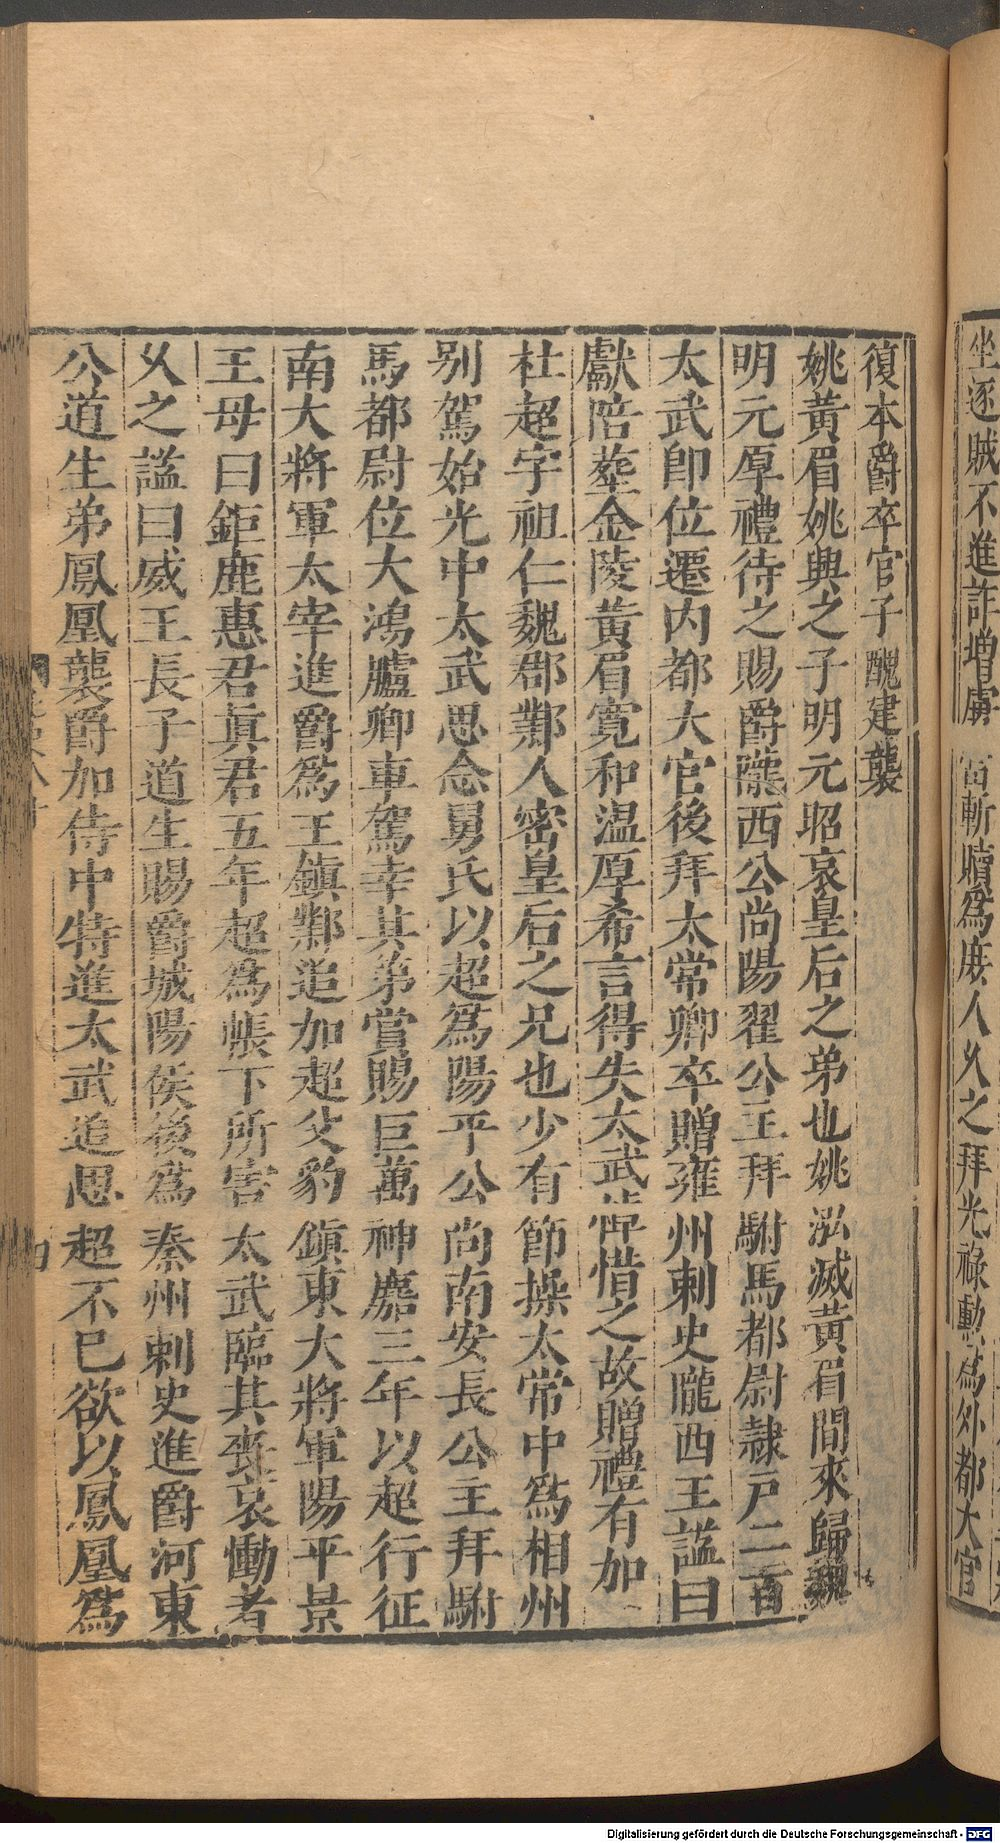 坐逐賊不進詐增虜當斬贖爲庶人乆之拜光祿勲爲外都大官
復本爵卒官子醜建襲
姚黃眉姚興之子明元昭哀皇后之弟也姚泓滅黃眉間來歸魏
明元厚禮待之賜爵隴西公尚陽翟公主拜駙馬都尉隸戸二百
太武卽位遷内都大官後拜太常卿卒贈雍州刺史隴西王諡曰
獻陪塟金陵黃眉寬和温厚希言得失太武悼惜之故贈禮有加
杜超字祖仁魏郡鄴人密皇后之兄也少有節操太常中爲相州
别駕始光中太武思念舅氏以超爲陽平公尚南安長公主拜駙
馬都尉位大鴻臚卿車駕幸其第嘗賜巨萬神䴥三年以超行征
南大將軍太宰進爵爲王鎭鄴追加超父豹鎭東大將軍陽平景
王母曰鉅鹿惠君眞君五年超爲帳下所害太武臨其喪哀慟者
乆之諡曰威王長子道生賜爵城陽侯後爲秦州刺史進爵河東
公道生弟鳳凰襲爵加侍中特進太武追思超不已欲以鳳凰爲
Digitalisierung gefördert durch die Deutsche Forschungsgemeinschaft - DFG